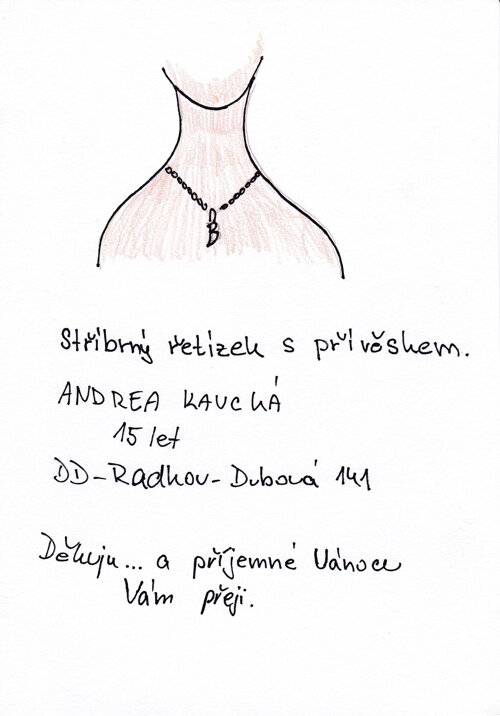 B
Stříbrný řetízek s přívěskem.
ANDREA KAUCKÁ
15 let
DD-Radkov-Dubová 141
Děkuju... a příjemné Vánoce
Vám přeji.